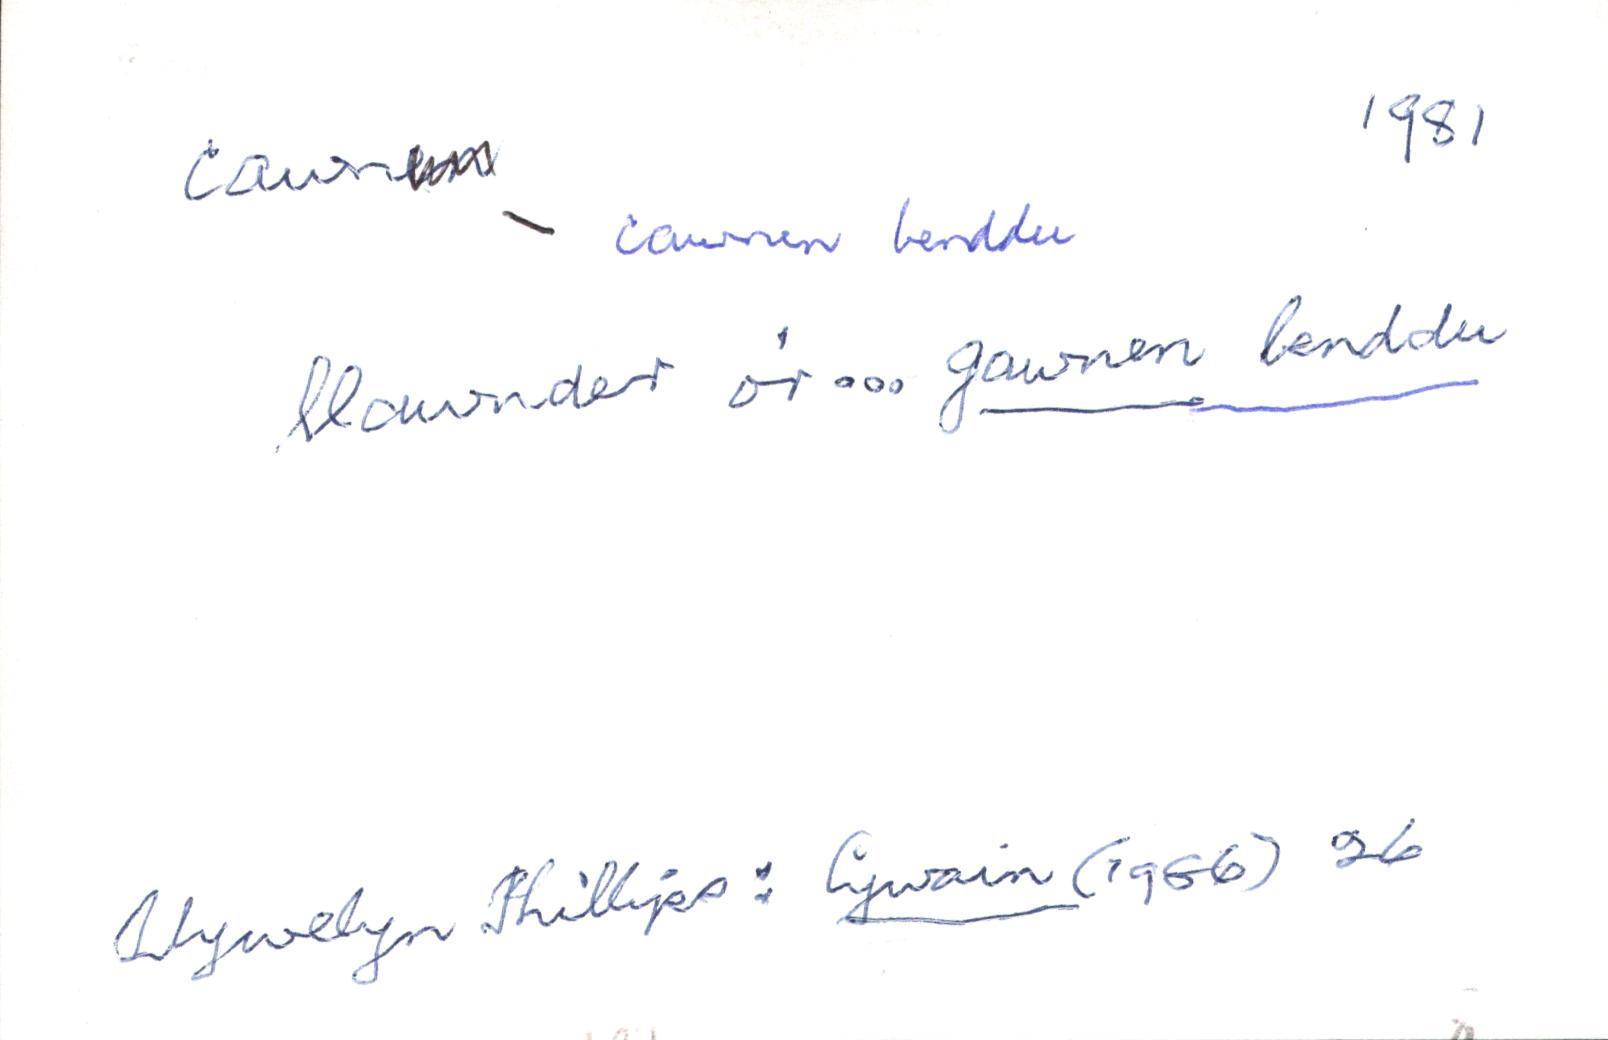 1981
cawn
- cawnen benddu
llawnder o'r ... gawnen benddu
Llywelyn Phillips: Cywain (1986) 26